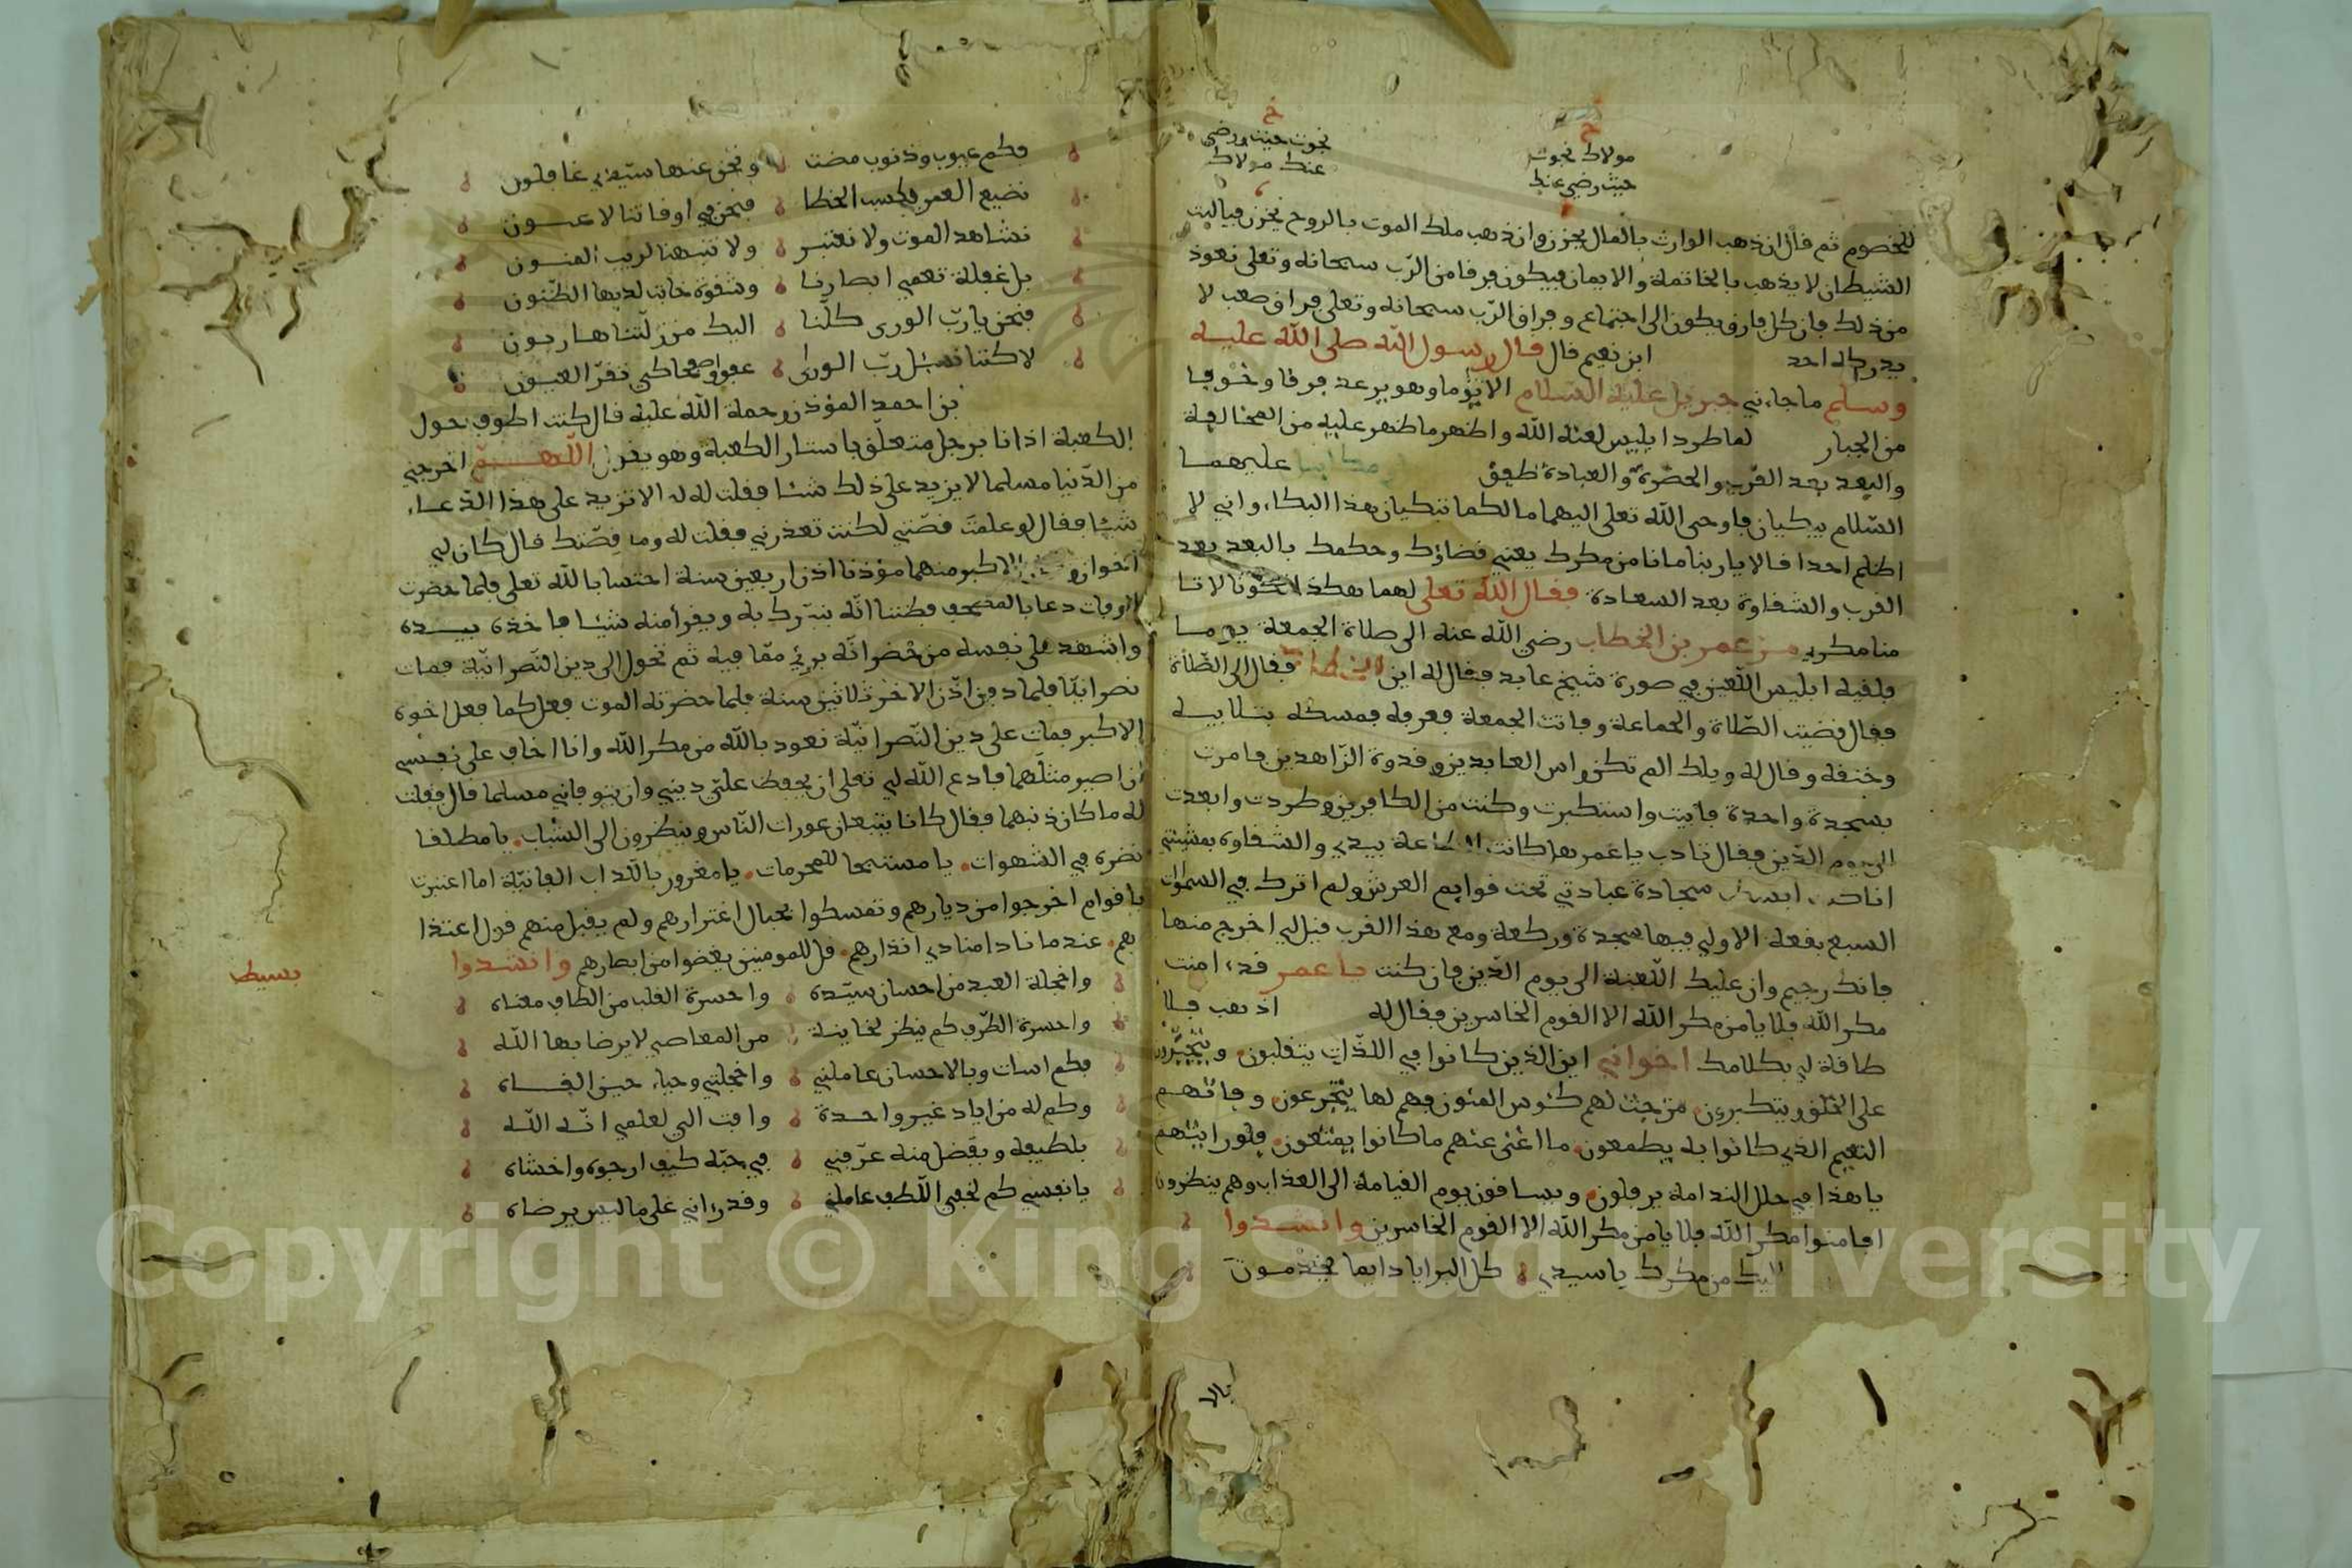 مولاك نجوت
حيث رضى عنك
نجوت حيث رضى
عنك مولاك
للخصوم ثم قال ان ذهب الوارث بالمال يجزن وان ذهب ملك الموت بالروح يجزن فياليت
الشيطان لا يذهب بالخاتمة والايمان فيكون فرقا من الرّب سبحانه وتعلى نعوذ
من ذلك فان كل فارق يكون الى اجتماع وفراق الرّب سبحانه وتعلى فراق صعب لا
يدركه احد ابن نعيم قال قال رسول الله صلى الله عليه
وسلم ما جاءني جبريل عليه السلام الا يوما وهو يرعد فرقا وخوفا
من الجبار لما طرد ابليس لعنه الله واظهر ما ظهر عليه من المخالفة
والبعد بعد القرب والحضرة والعبادة طفق عليهما
السّلام يبكيان فاوحى الله تعلى اليهما ما لكما تبكيان هذا البكاء واني لا
اظلم احدا قالا يا ربنا ما انا من مكرك يعني قضاؤك وحكمك بالبعد بعد
القرب والشقاوة بعد السعادة فقال الله تعلى لهما هكذا كونا لا تا
منا مكري عمر بن الخطاب رضي الله عنه الى صلاة الجمعة يوما
فلقيه ابليس اللّعين في صورة شيخ عابد فقال له اين فقال الى الصّلاة
فقال قضيت الصّلاة والجماعة وفاتت الجمعة فعرفه فمسكه بتلابيبه
وخنقه وقال له ويلك الم تكن راس العابدين وقدوة الزّاهدين فامرت
بسجدة واحدة فابيت واستكبرت وكنت من الكافرين وطردت وابعدت
الى يوم الدّين فقال تادب يا عمر هل كانت الطاعة بيدي والشقاوة بمشيئتي
سجادة عبادتي تحت قوايم العرش ولم اترك في السموات
السبع بقعة الا ولي فيها سجدة وركعة ومع هذا القرب قيل لي اخرج منها
فانك رجيم وان عليك اللّعنة الى يوم الدّين فان كنت يا عمر قد امنت
مكر الله فلا يامن مكر الله الا القوم الخاسرين فقال له اذهب فلا
طاقة لي بكلامك اخواني اين الذين كانوا في اللذّات يتقلبون و
على الخلق ويتكبرون مزجت لهم كئوس المنون فهم لها يتجرعون وفاتهم
النعيم الذي كانوا به يطمعون ما اغنى عنهم ما كانوا يمتعون فلو رايتهم
يا هذا في حلل الندامة يرفلون ويساقون يوم القيامة الى العذاب وهم ينظرون
افامنوا مكر الله فلا يامن مكر الله الا القوم الخاسرين وانشدوا
من مكرك يا سيدي كل البرايا دايما
فكم عيوب وذنوب مضت ونحن عنها سيّدي غافلون
نضيع العمر بكسب الخطا فنحن في اوقاتنا لاعبون
نشاهد الموت ولا نعتبر ولا تنبهنا لريب المنون
بل غفلة تعمي ابصارنا وشقوة خابت لديها الظّنون
فنحن يا ربّ الورى كلّنا اليك من زلّتنا هاربون
لاكننا نسئل ربّ الورى عفوا وصفحا كي تقرّ العيون
بن احمد المؤذن رحمة الله عليه قال كنت اطوف حول
الكعبة اذ انا برجل متعلّق باستار الكعبة وهو يقول اللّهمّ اخرجني
من الدّنيا مسلما لا يزيد على ذلك شيئا فقلت له الا تزيد على هذا الدّعاء
شيئا فقال لو علمت قصّتي لكنت تعذرني فقلت له وما قصّتك قال كان لي
اخوان الاكبر منهما مؤذنا اذن اربعين سنة احتسابا لله تعلى فلما حضرت
الوفات دعا بالمصحف فظننا انّه يتبرك به ويقرا منه شيئا فاخذه بيده
واشهد على نفسه من حضر انّه بريء ممّا فيه ثم تحول الى دين النّصرانيّة فمات
نصرانيّا فلما دفن اذّن الاخر ثلاثين سنة فلما حضرته الموت فعل كما فعل اخوه
الاكبر فمات على دين النّصرانيّة نعوذ بالله من مكر الله وانا اخاف على نفسي
ان اصير مثلهما فادع الله لي تعلى ان يحفظ عليّ ديني وان يتوفاني مسلما قال فقلت
له ما كان ذنبهما فقال كانا يتبعان عورات النّاس وينظرون الى الشباب يا مطلقا
نضره في الشهوات يا مستبيحا للمحرمات يا مغرور باللّذات الفانيّة اما اعتبرت
باقوام اخرجوا من ديارهم وتمسكوا بحبال اغترارهم ولم يقبل منهم قول اعتذا
رهم عندما نادا منادي انذارهم قل للمومنين يغضوا من ابصارهم وانشدوا
بسيط
واخجلة العبد من احسان سيّده واحسرة القلب من الطاف معناه
واحسرة الطّرف كم ينظر لخاينة من المعاصي لا يرضا بها اللّه
فكم اسات وبالاحسان عاملني واخجلتي وحياء حين القاه
وكم له من اياد غير واحدة وافت الي لعلمي انّه اللّه
بلطيفه وبفضل منه عرّفني في حبّه كيف ارجوه واخشاه
يا نفس كم لخفي اللّطف عاملني وقد راني على ما ليس يرضاه
Copyright © King Saud University